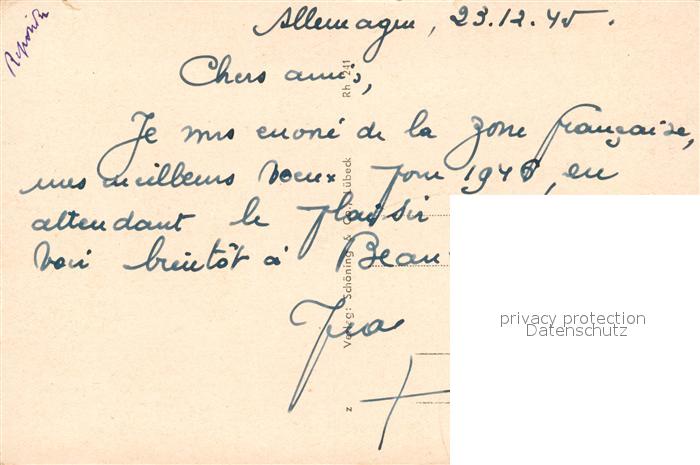 Réponds
Allemagne, 23.12.45.
Chers amis,
Je vous envoie de la zone française,
mes meilleurs voeux pour 1946, en
attendant le plaisir
voir bientôt à Beau
Verlag: Schöning & Co., Lübeck Rh 241
z
privacy protection
Datenschutz